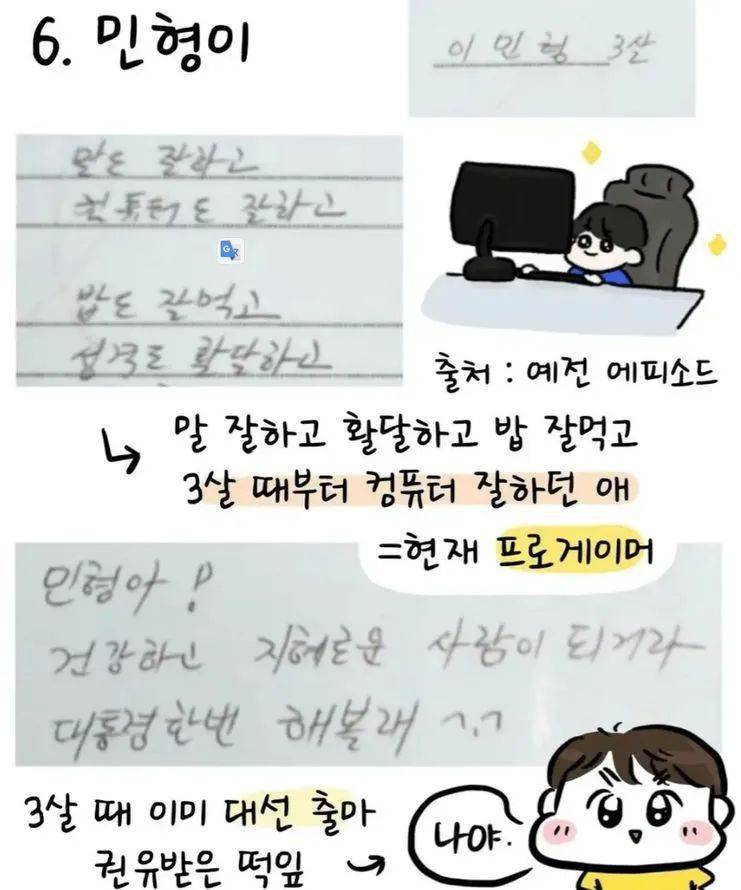 6. 민형이
이 민 형 3살
말도 잘하고
컴퓨터도 잘하고
밥도 잘먹고
성격도 활달하고
출처 : 예전 에피소드
↳ 말 잘하고 활달하고 밥 잘먹고
3살 때부터 컴퓨터 잘하던 애
=현재 프로게이머
민형아 !
건강하고 지혜로운 사람이 되거라
대통령한번 해볼래 ^.^
3살 때 이미 대선 출마
권유받은 떡잎 →
나야.